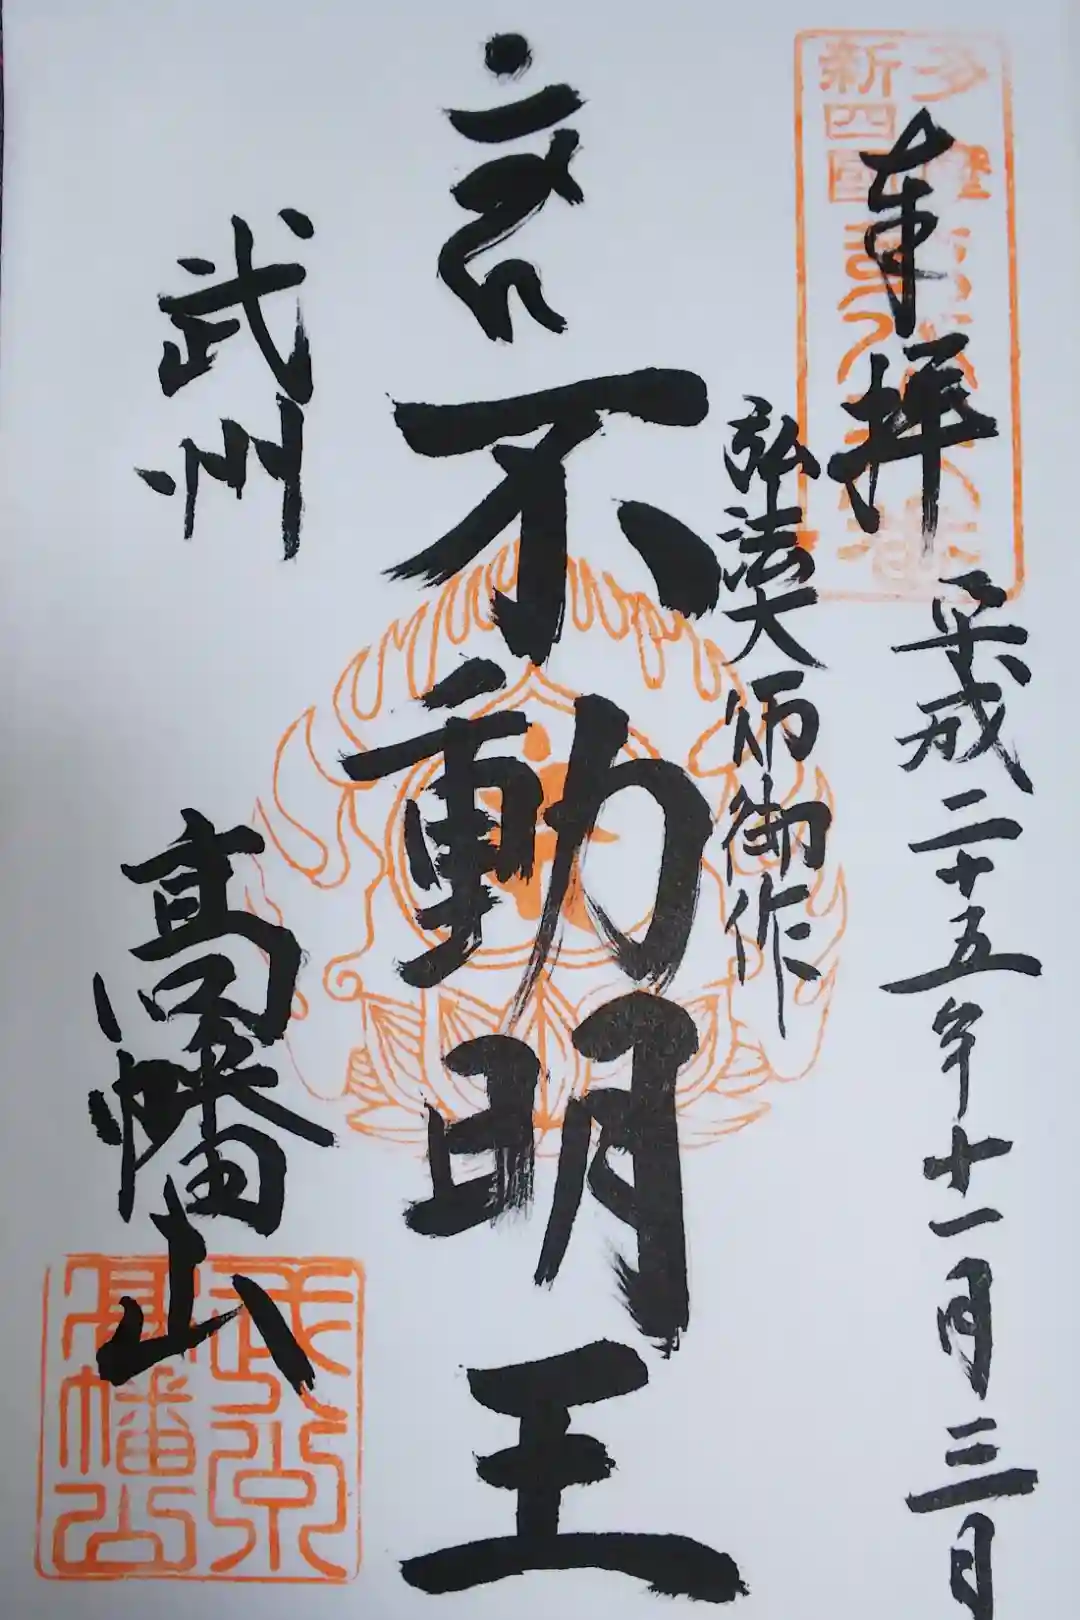 奉拝
平成二十五年十一月三日
弘法大師御作
不動明王
武州
高幡山
多摩
新四國
武州
高幡山